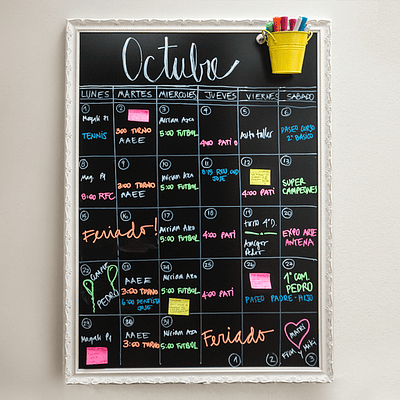 Octubre
LUNES MARTES MIERCOLES JUEVES VIERNES SABADO
1 2 3 4 5 6
Magali Pj
TENNIS
3:00 TURNO
AAEE
Miriam Aza
5:00 FUTBOL
4:00 PATI
Auto taller
PASEO CURSO
2º BASICO
8 9 10 11 12 13
Mag. Pj
8:00 RFC
3:00 TURNO
AAEE
Miriam Aza
5:00 FUTBOL
8:15 REU COD
JOSE
4:00 PATI
SUPER
CAMPEONES
15 16 17 18 19 20
Feriado!
Miriam Aza
5:00 FUTBOL
4:00 PATI
turno 4ºD.
Pedro
EXPO ARTE
ANTENA
22 23 24 25 26
PEDRO
AAEE
3:00 TURNO
6:00 DENTISTA
JOSE
Miriam Aza
5:00 FUTBOL
4:00 PATI
PASEO PADRE-HIJO
1º COM.
PEDRO
29 30 31
Magali Pj
AAEE
3:00 TURNO
Miriam Aza
5:00 FUTBOL
Feriado
1 2 3
MATRI